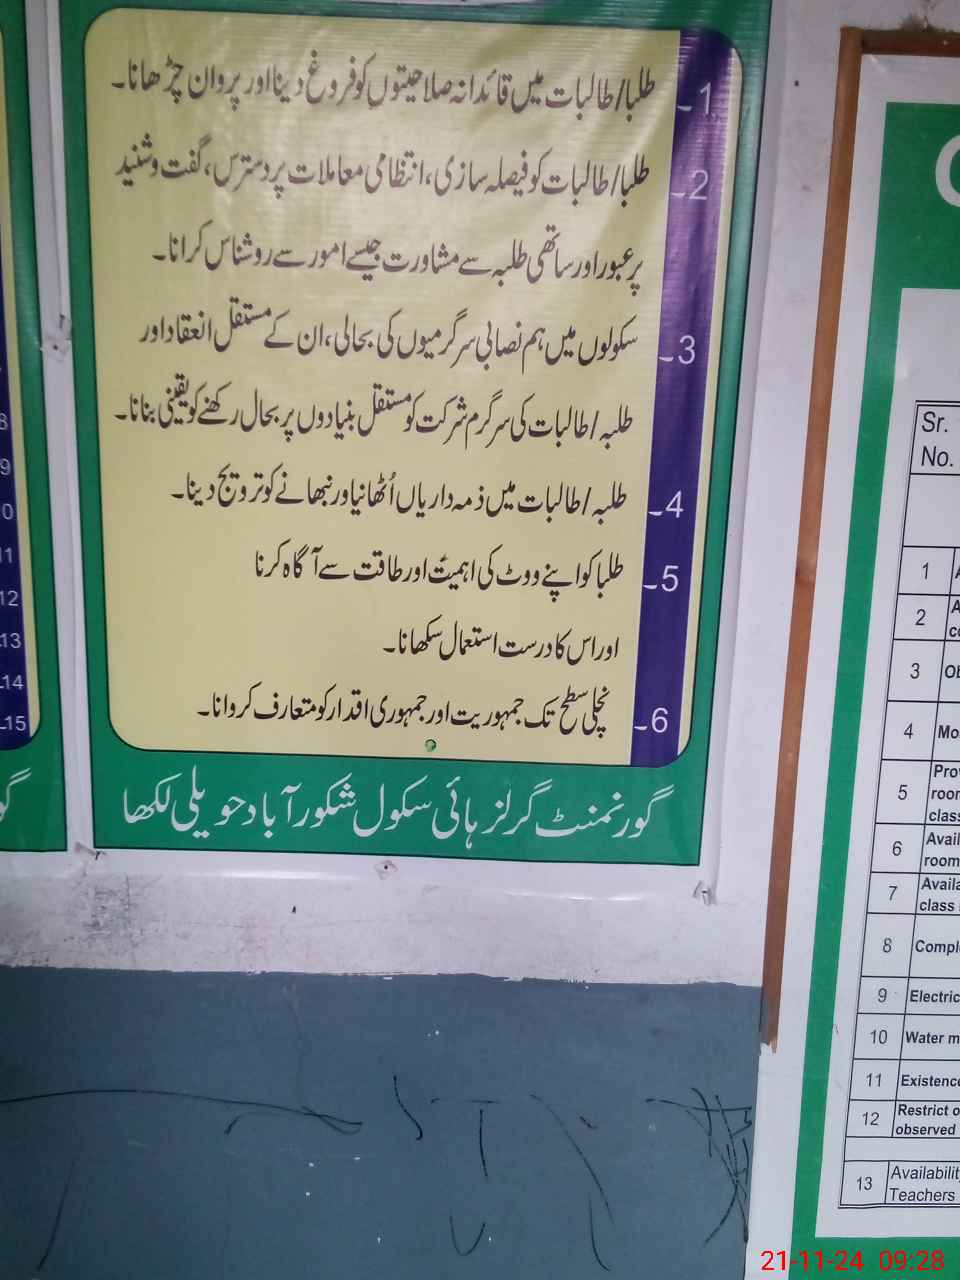 1۔ طلبا/طالبات میں قائدانہ صلاحیتوں کو فروغ دینا اور پروان چڑھانا۔
2۔ طلبا/طالبات کو فیصلہ سازی، انتظامی معاملات پر دسترس، گفت و شنید
پر عبور اور ساتھی طلبہ سے مشاورت جیسے امور سے روشناس کرانا۔
3۔ سکولوں میں ہم نصابی سرگرمیوں کی بحالی، ان کے مستقل انعقاد اور
طلبہ/طالبات کی سرگرم شرکت کو مستقل بنیادوں پر بحال رکھنے کو یقینی بنانا۔
4۔ طلبہ/طالبات میں ذمہ داریاں اُٹھانیاور نبھانے کو ترویج دینا۔
5۔ طلبا کو اپنے ووٹ کی اہمیت اور طاقت سے آگاہ کرنا
اور اس کا درست استعمال سکھانا۔
6۔ نچلی سطح تک جمہوریت اور جمہوری اقدار کو متعارف کروانا۔
گورنمنٹ گرلز ہائی سکول شکور آباد حویلی لکھا
8
9
0
11
12
13
14
15
Sr.
No.
1 A
2
3 Ob
4 Mo
5 Prov
room
class
6 Avail
room
7 Availa
class
8 Comple
9 Electric
10 Water m
11 Existence
12 Restrict o
observed
13 Availabilit
Teachers
21-11-24 09:28